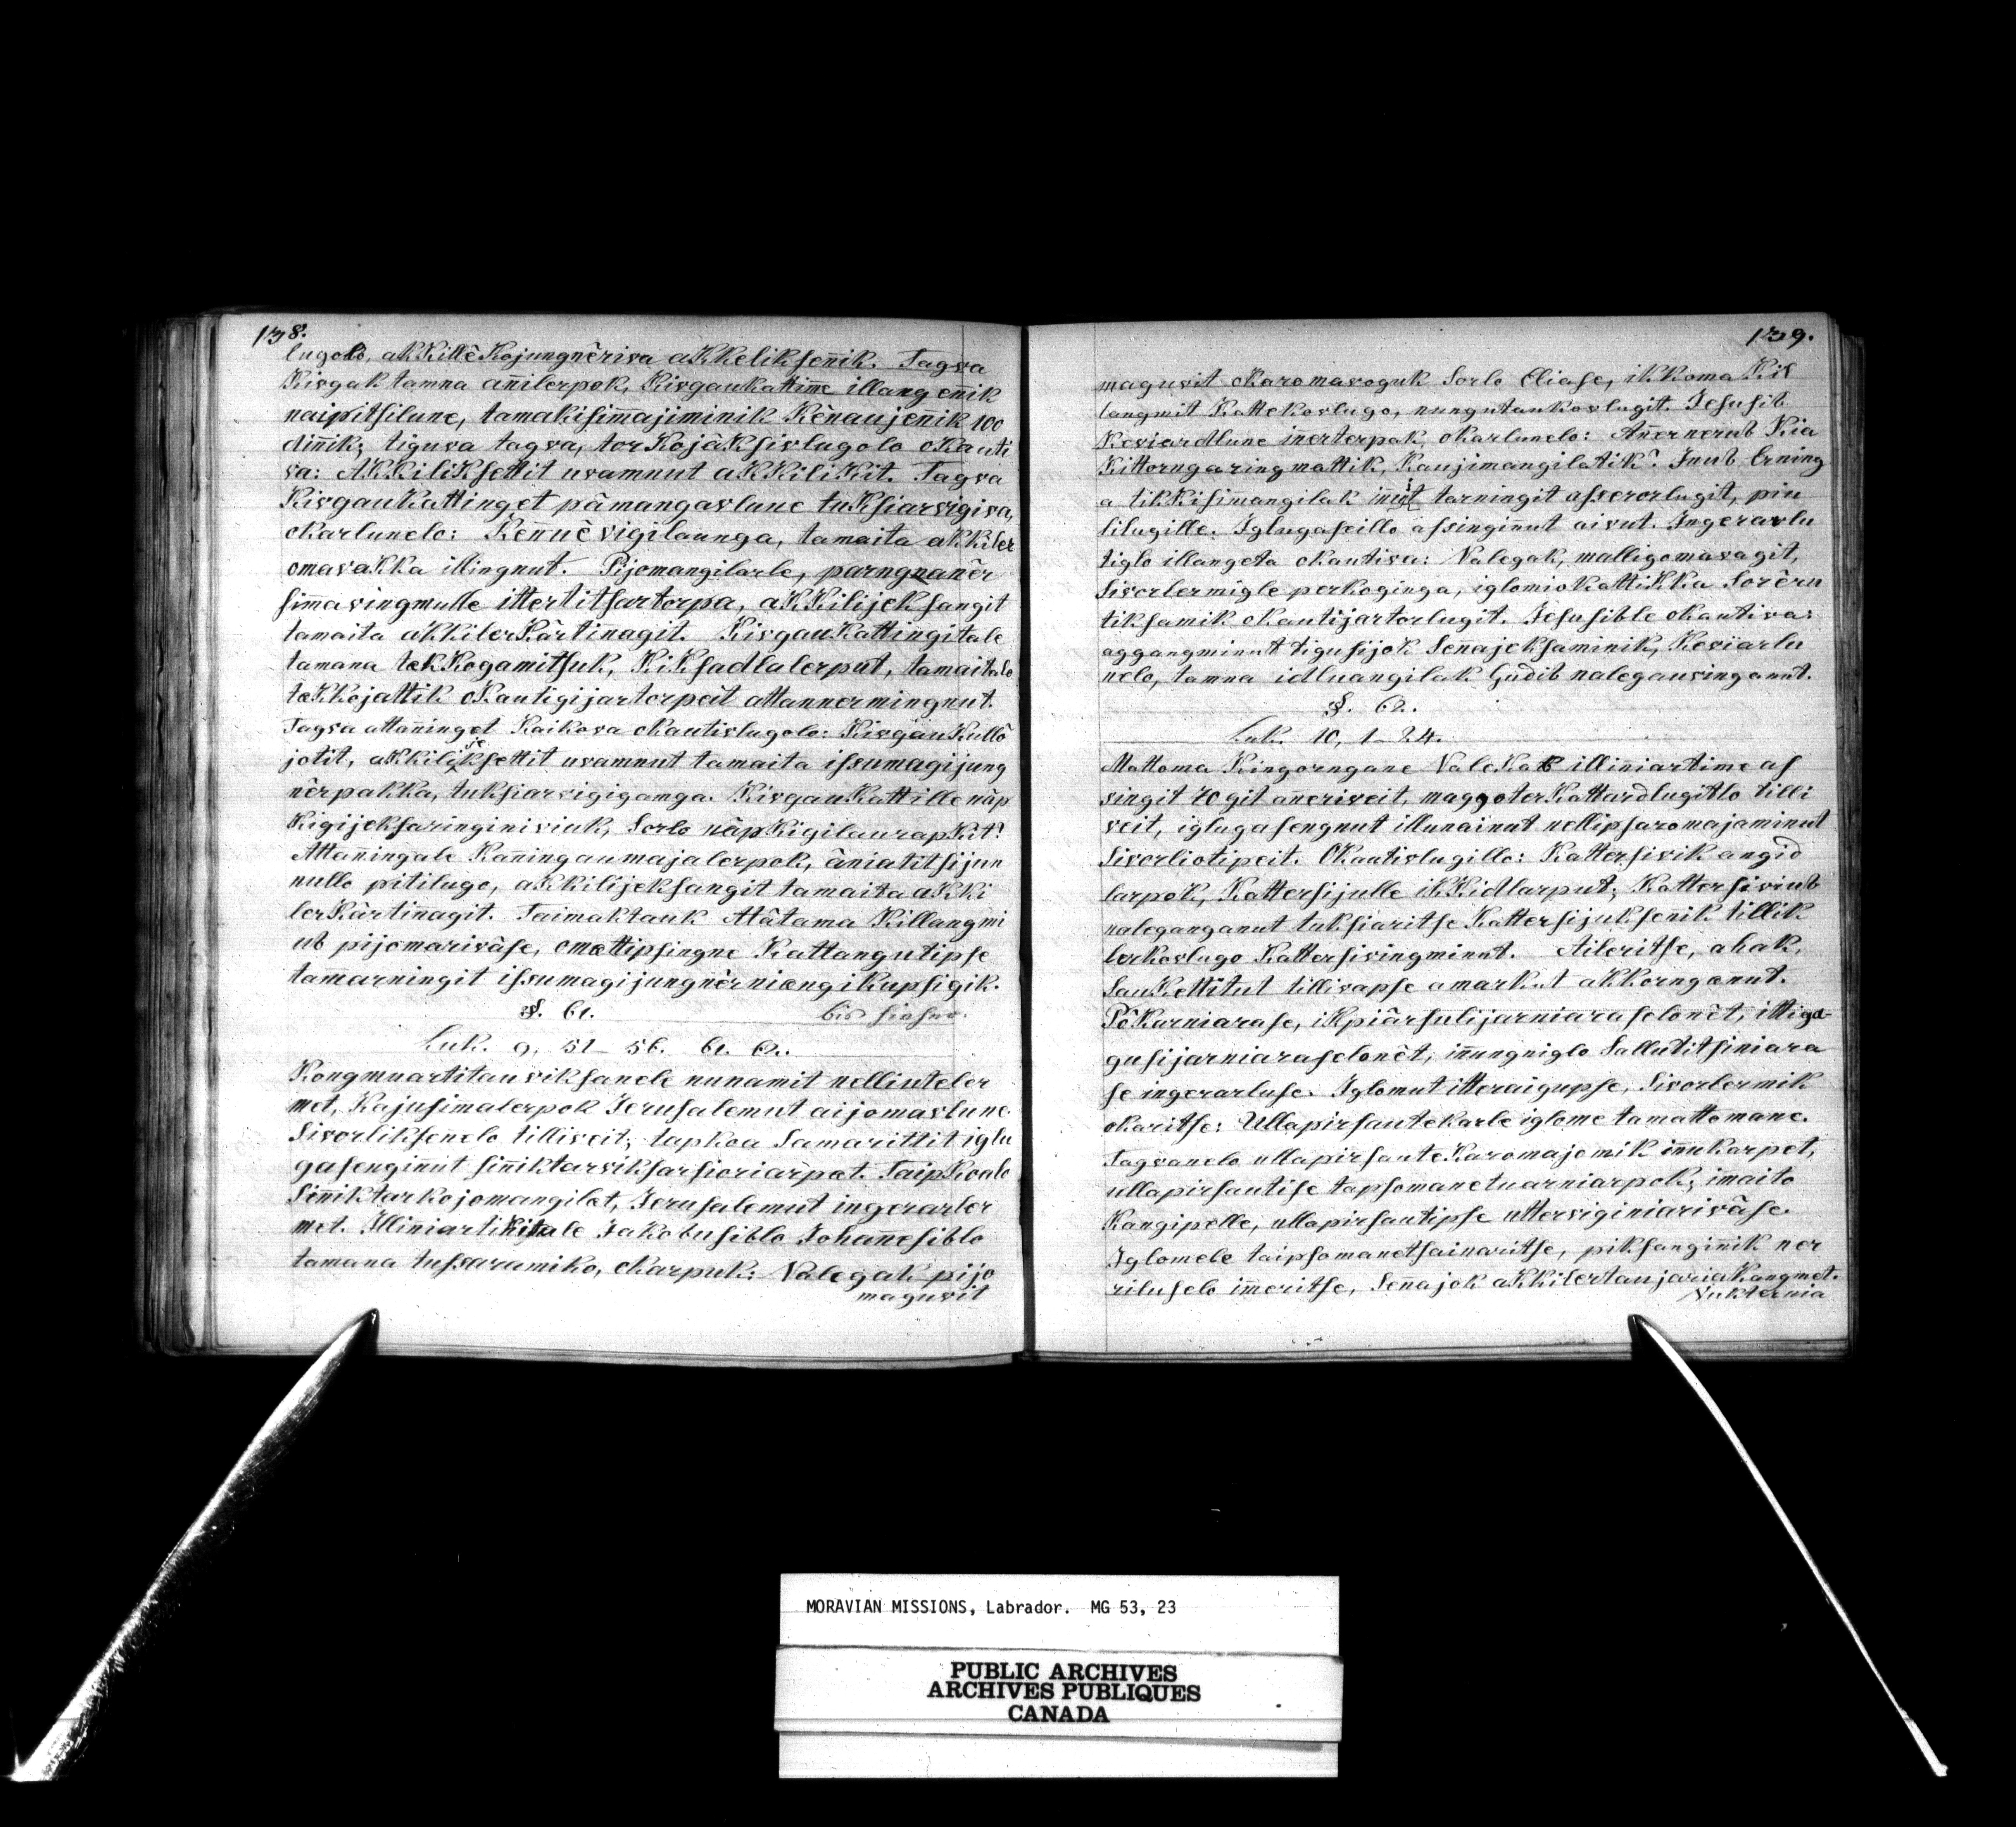 138.
lugolo, akKillêKojungnêriva aKkelikseñik. Tagva
Kivgak tamna añilerpok, Kivgaukattime illangeñik
naipitsilune, tamakisimajiminik Kênaujeñik 100
diñik; tiguva tagva, torKojâksivlugolo oKauti
va: AKKiliksettit uvamnut aKKiliKit. Tagva
KivgauKattinget pâmangavlune tuksiarvigiva,
okarlunelo: Keñuêvigilaunga, tamaita akkiler
omavaKKa illingnut. Pijomangilarle, parngnanêr
simavingmulle ittertitsartorpa, aKKilijeksangit
tamaita akkilerKârtiñagit. KivgauKattingitale
tamana takKogamitsuk, KiKsadlalerput, tamaitalo
takkojattik oKautigijartorpeit attannermingnut.
Tagva attaninget Kaikova okautivlugolo: KivgauKullô
jotit, aKkilijeksettit uvamnut tamaita issumagijung
nêrpakka, tuksiarvigigamga. KivgauKattille nâp
Kigijeksaringiniviuk, Sorlo nâpKigilaurapKit?
Attaningale Kaningaumajalerpok, âniatitsijun
nullo pitilugo, aKkilijeksangit tamaita aKKi
lerKârtiñagit. Taimaktauk Atâtama Killangmi
ub pijomarivâse, omattipsingne Kattangutipse
tamarningit issumagijungnêrniangikupsigik.
§. 61.
Luk. 9, 51–56. 61. 62.
Kongmuartitauviksanele nunamit nelliuteler
met, Kajusimalerpok Jerusalemut aijomavlune.
Sivorlikseñelo tilliveit; tapkoa Samarittit iglu
gasengiñut siñiktarviksarsioriarpat. TaipKoalo
Siñiktarkojomangilat, Jerusalemut ingerarler
met. IlliniartiKitale Jakobusiblo Johañesiblo
tamana tussaramiko, okarpuk: Nalegak pijo
maguvit
139.
maguvit okaromavoguk Sorlo Eliase, ikkoma Kil
langmit Kattekovlugo, nungutaukovlugit. Jesusib
Keviardlune iñerterpak, okarlunelo: Añernerub Kia
Kittorngaringmattik, Kaujimangilatik? Inub Erning
a tikKisimangilak iñuit tarningit asserorlugit, piu
lilugille. Iglugaseillo assingiñut aivut. Ingerarlu
tiglo illangeta okautiva: Nalegak, malligomavagit,
Sivorlermigle perkoginga, iglomiokattikka Sorêru
tiksamik okautijartorlugit. Jesusible okautiva:
aggangminut tigusijok Señajeksaminik, Keviarlu
nelo, tamna idluangilak Gudib nalegauvinganut.
§. 62.
Luk. 10, 1–24.
Mattoma Kingorngane NaleKab illiñiartime as
singit 70git añeriveit, maggoterKattardlugitlo tilli
veit, iglugasengnut illunainut nellipsaromajaminut
Sivorliotipeit. OKautivlugillo: Kattersivik angid
larpok, Kattersijulle ikKidlarput; Kattersiviub
naleganganut tuksiaritse Kattersijukseñik tillik
lerkovlugo Kattersivingminut. Aileritse, ahak,
SauKettitut tillivapse amarkut akkornganut.
PôKarniarase, iKpiârsulijarniaraselonêt, ittiga-
gusijarniaraselonêt, iñungniglo Sallutitsiniara
se ingerarluse. Iglomut itteraigupse, Sivorlermik
okaritse: Ullapirsautekarle iglome tamattomane.
Tagvanelo ullapirsauteKaromajomik iñukarpet,
ullapirsautise tapsomanetuarniarpok; imaito
Kangipelle, ullapirsautipse utterviginiarivâse.
Iglomele taipsomanetsainaritse, piksanginik ner
riluselo imeritse, Señajok aKkilertaujariaKangmet.
Nukternia
MORAVIAN MISSIONS, Labrador. MG 53, 23
PUBLIC ARCHIVES
ARCHIVES PUBLIQUES
CANADA